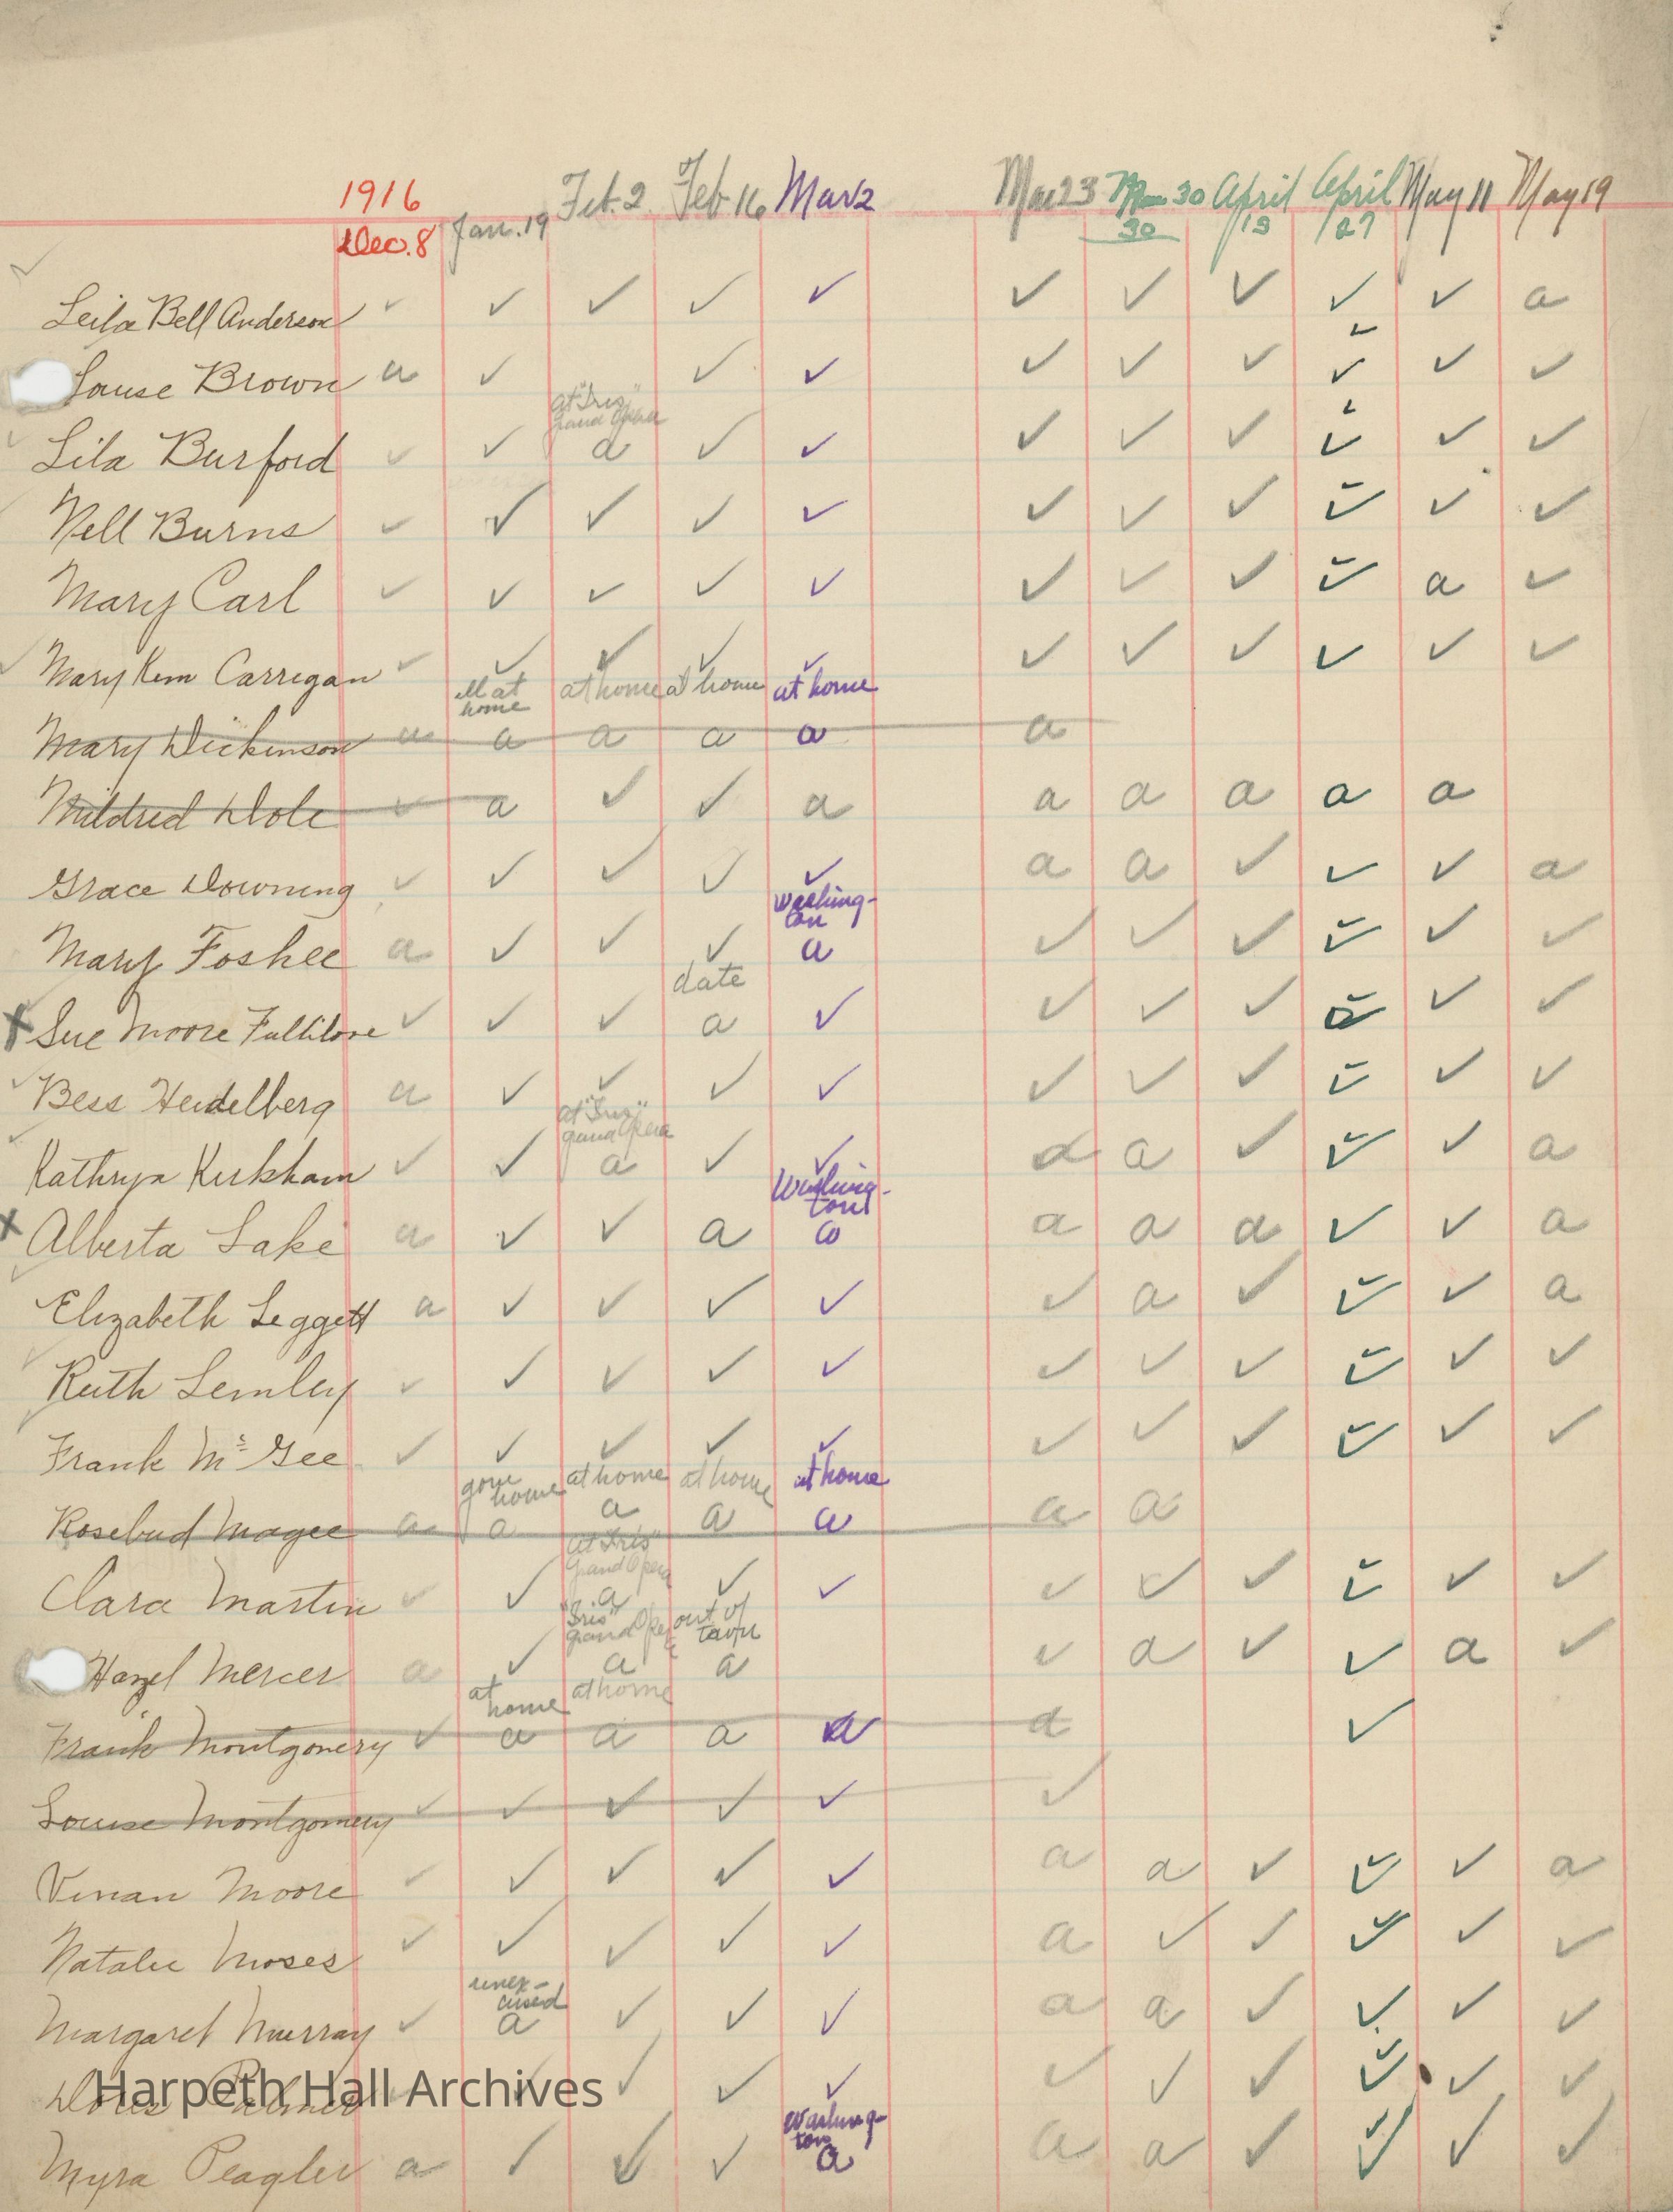 1916
Dec. 8 Jan. 19 Feb. 2 Feb 16 Mar 2 Mar 23 30 April 13 April 27 May 11 May 19
30
Leila Bell Anderson ✓ ✓ ✓ ✓ ✓ ✓ ✓ ✓ ✓ ✓ a
Louise Brown a ✓ ✓ ✓ ✓ ✓ ✓ ✓ ✓ ✓
at "Iris" grand Opera
Lila Burford ✓ ✓ a ✓ ✓ ✓ ✓ ✓ ✓ ✓ ✓
Nell Burns ✓ ✓ ✓ ✓ ✓ ✓ ✓ ✓ ✓ ✓ ✓
Mary Carl ✓ ✓ ✓ ✓ ✓ ✓ ✓ ✓ ✓ a ✓
Mary Kem Carrigan ✓ ✓ ✓ ✓ ✓ ✓ ✓ ✓ ✓ ✓ ✓
ill at home at home at home at home
Mary Dickinson a a a a a a
Mildred Dole ✓ a ✓ ✓ a a a a a a
Grace Downing ✓ ✓ ✓ ✓ ✓ a a ✓ ✓ ✓ a
Washing-ton
Mary Foshee a ✓ ✓ ✓ a ✓ ✓ ✓ ✓ ✓ ✓
date
x Sue Moore Fullilove ✓ ✓ ✓ a ✓ ✓ ✓ ✓ ✓ ✓ ✓
Bess Heidelberg a ✓ ✓ ✓ ✓ ✓ ✓ ✓ ✓ ✓ ✓
at "Iris" grand Opera
Kathryn Kirkham ✓ ✓ a ✓ ✓ a a ✓ ✓ ✓ a
Washing-ton
x Alberta Lake a ✓ ✓ a a a a a ✓ ✓ a
Elizabeth Leggett a ✓ ✓ ✓ ✓ ✓ a ✓ ✓ ✓ a
Ruth Lemley ✓ ✓ ✓ ✓ ✓ ✓ ✓ ✓ ✓ ✓ ✓
Frank McGee ✓ ✓ ✓ ✓ ✓ ✓ ✓ ✓ ✓ ✓ ✓
gone home at home at home at home
Rosebud Magee a a a a a a a
at "Iris" Grand Opera
Clara Martin ✓ ✓ a ✓ ✓ ✓ ✓ ✓ ✓ ✓ ✓
"Iris" grand Opera out of town
Hazel Mercer a ✓ a a ✓ a ✓ ✓ a ✓
at home at home
Frank Montgomery ✓ a a a a a ✓
Louise Montgomery ✓ ✓ ✓ ✓ ✓ ✓
Vivian Moore ✓ ✓ ✓ ✓ ✓ a a ✓ ✓ ✓ a
Natalie Moses ✓ ✓ ✓ ✓ ✓ a ✓ ✓ ✓ ✓ ✓
unex-cused
Margaret Murray ✓ a ✓ ✓ ✓ a a ✓ ✓ ✓ ✓
Harpeth Hall Archives
✓ ✓ ✓ ✓ ✓ ✓ ✓ ✓ ✓ ✓
Washing-ton
Myra Peagler a ✓ ✓ ✓ a a a ✓ ✓ ✓ ✓